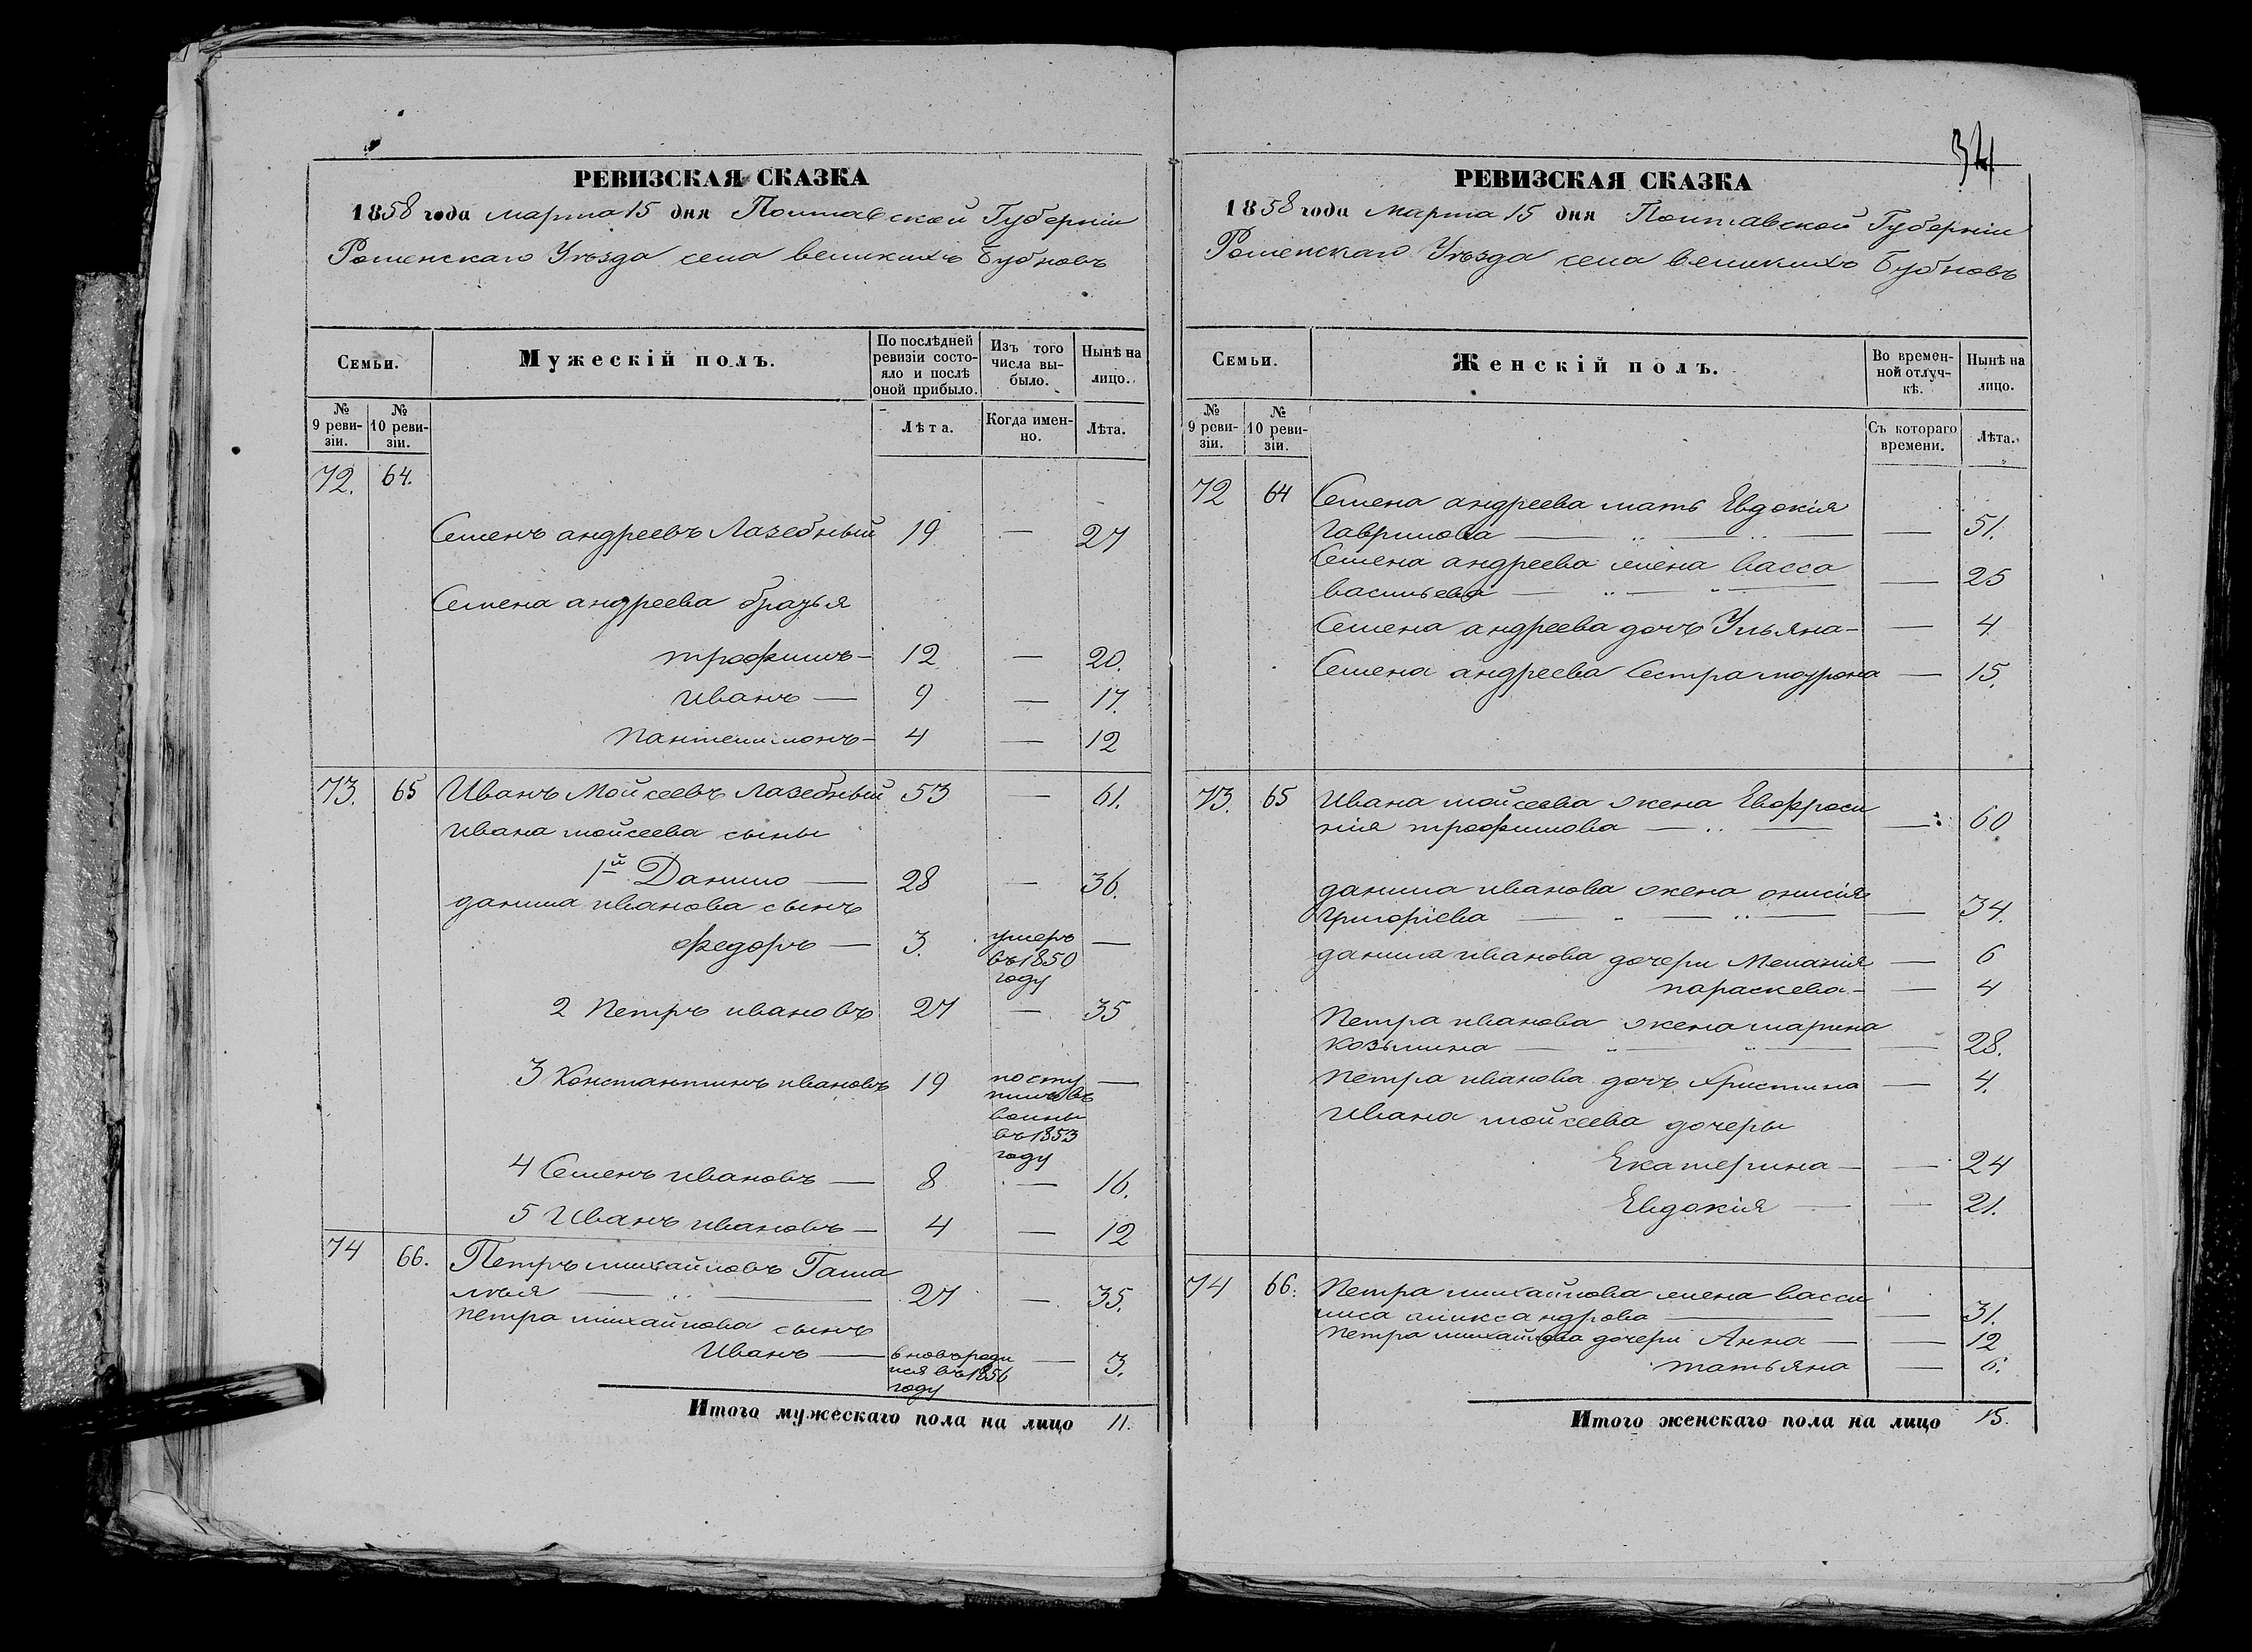 РЕВИЗСКАЯ СКАЗКА
1858 года марта 15 дня Полтавской Губерніи
Роменскаго Уѣзда села великихъ Бубновъ
Семьи.
Мужескій полъ.
По послѣдней ревизіи состояло и послѣ оной прибыло.
Изъ того числа выбыло.
Нынѣ на лицо.
№ 9 ревизіи.
№ 10 ревизіи.
Лѣта.
Когда именно.
Лѣта.
72. 64.
Семенъ андреевъ Лазебный 19 — 27
Семена андреева братья
трофимъ — 12 — 20.
иванъ — 9 — 17.
пантелимонъ — 4 — 12
73. 65 Иванъ Мойсеевъ Лазебный 53 — 61.
ивана мойсеева сыны
1й Данило — 28 — 36.
данила иванова сынъ
федоръ — 3. умеръ —
въ 1850
году
2 Петръ ивановъ 27 — 35
3 Константинъ ивановъ 19 посту —
пилъ въ
воины
въ 1853
году
4 Семенъ ивановъ — 8 — 16.
5 Иванъ ивановъ — 4 — 12
74 66. Петръ михайловъ Гама
лѣя — 27 — 35.
петра михайлова сынъ
Иванъ — вновъ роди — 3.
лся въ 1856
году
Итого мужескаго пола на лицо 11.
РЕВИЗСКАЯ СКАЗКА
1858 года марта 15 дня Полтавской Губерніи
Роменскаго Уѣзда села великихъ Бубновъ
Семьи.
Женскій полъ.
Во временной отлучкѣ.
Нынѣ на лицо.
№ 9 ревизіи.
№ 10 ревизіи.
Съ котораго времени.
Лѣта.
72 64 Семена андреева мать Евдокія
гаврилова — — 51.
Семена андреева жена васса
васильева — — 25
Семена андреева дочъ Ульяна — — 4
Семена андреева Сестра — 15.
73. 65 Ивана мойсеева жена Евфроси
нія трофимова — — 60
данила иванова жена онисія
григоріева — — 34.
данила иванова дочери Меланія — 6
параскева — — 4
Петра иванова жена марина
козьмина — — 28.
петра иванова дочъ христина — 4.
Ивана мойсеева дочеры
Екатерина — — 24
Евдокія — — 21.
74 66. Петра михайлова жена васси
лиса александрова — — 31.
петра михайлова дочери Анна — — 12
татьяна — 6.
Итого женскаго пола на лицо 15.